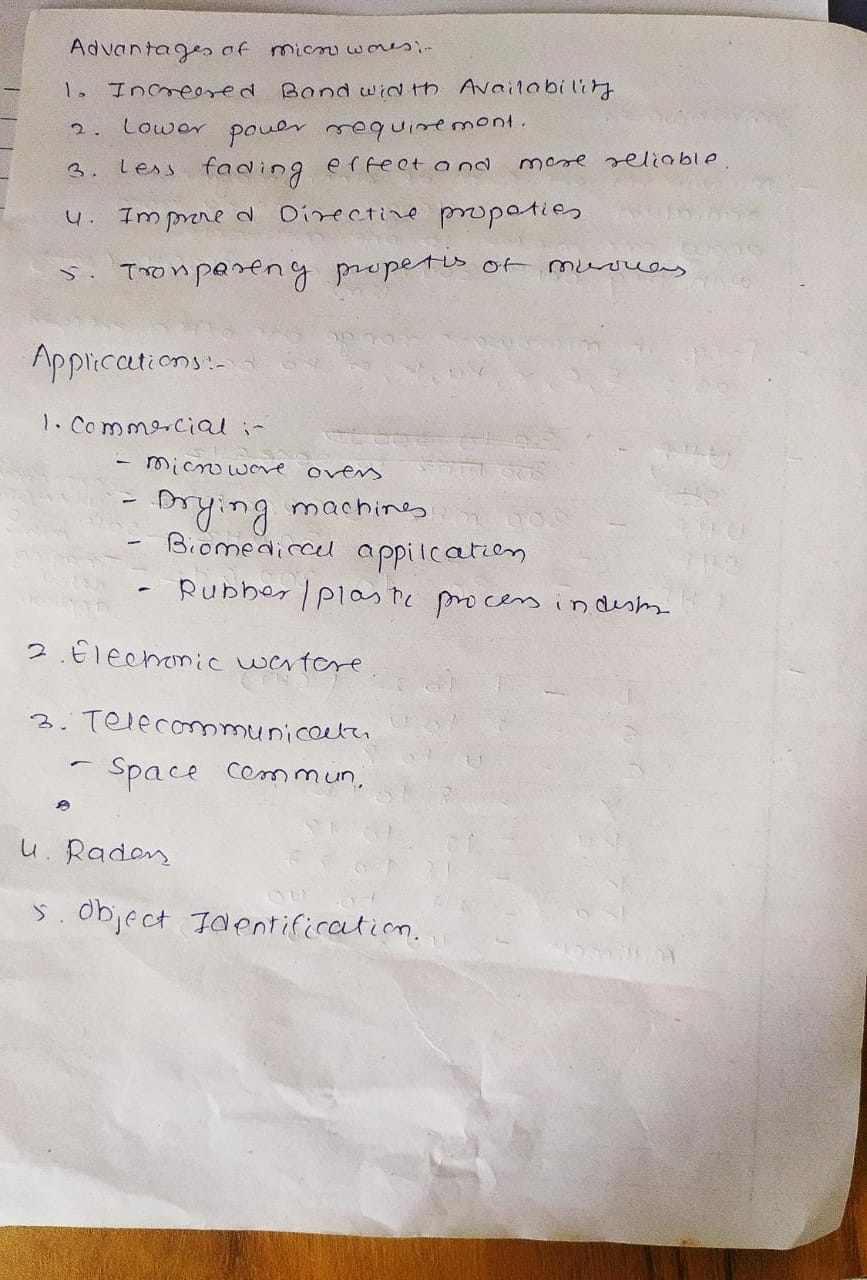 Advantages of microwaves:-
1. Increased Bandwidth Availability
2. Lower power requirement.
3. Less fading effect and more reliable.
4. Improved Directive propeties
5. Tronspareny propertis of
Applications:-
1. Commercial :-
- microwave ovens
- Drying machines
- Biomedical appilcation
- Rubber/plastic process
2. Electronic warfare.
3. Telecommunication
- Space commun.
4. Radars
5. Object Identification.